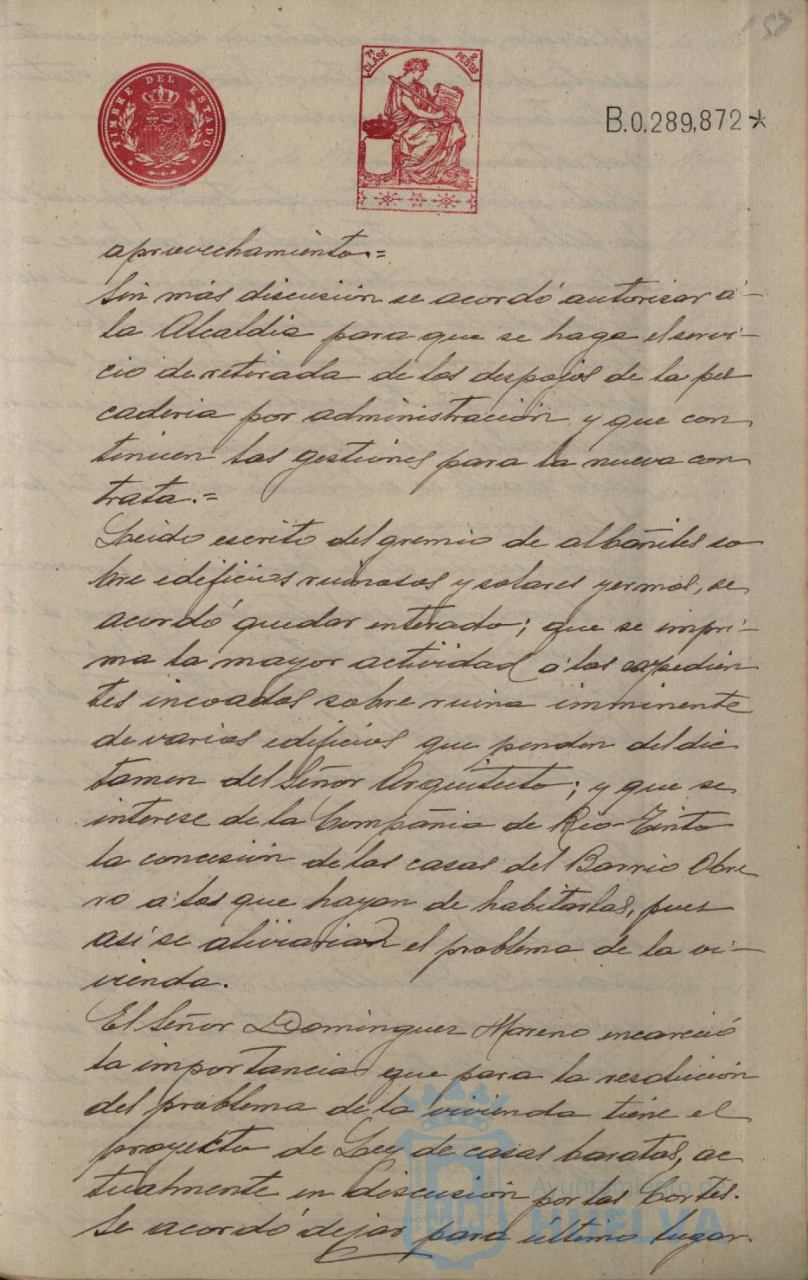 TIMBRE DEL ESTADO
7ª CLASE
2 PESETAS
B.0.289,872*
aprovechamiento.=
Sin más discusión se acordó autorizar á-
la Alcaldia para que se haga el servi-
cio de retirada de los despojos de la pes
caderia por administración y que con
tinúen las gestiones para la nueva con
trata.=
Leido escrito del gremio de albañiles so
bre edificios ruinosos y solares yermos, se
acordó quedar enterado; que se impri-
ma la mayor actividad a los expedien
tes incoados sobre ruina imminente
de varios edificios que penden del dic
tamen del Señor Arquitecto; y que se
interese de la Compañia de Rio-Tinto
la concesión de las casas del Barrio Obre
ro a los que hayan de habitarlas, pues
así se aliviarian el problema de la vi-
vienda.
El Señor Dominguez Moreno encareció
la importancia que para la resolución
del problema de la vivienda tiene el
proyecto de Ley de casas baratas, ac
tualmente en discusión por las Cortes.
Se acordó dejar para último lugar.
Ayuntamiento de
HUELVA